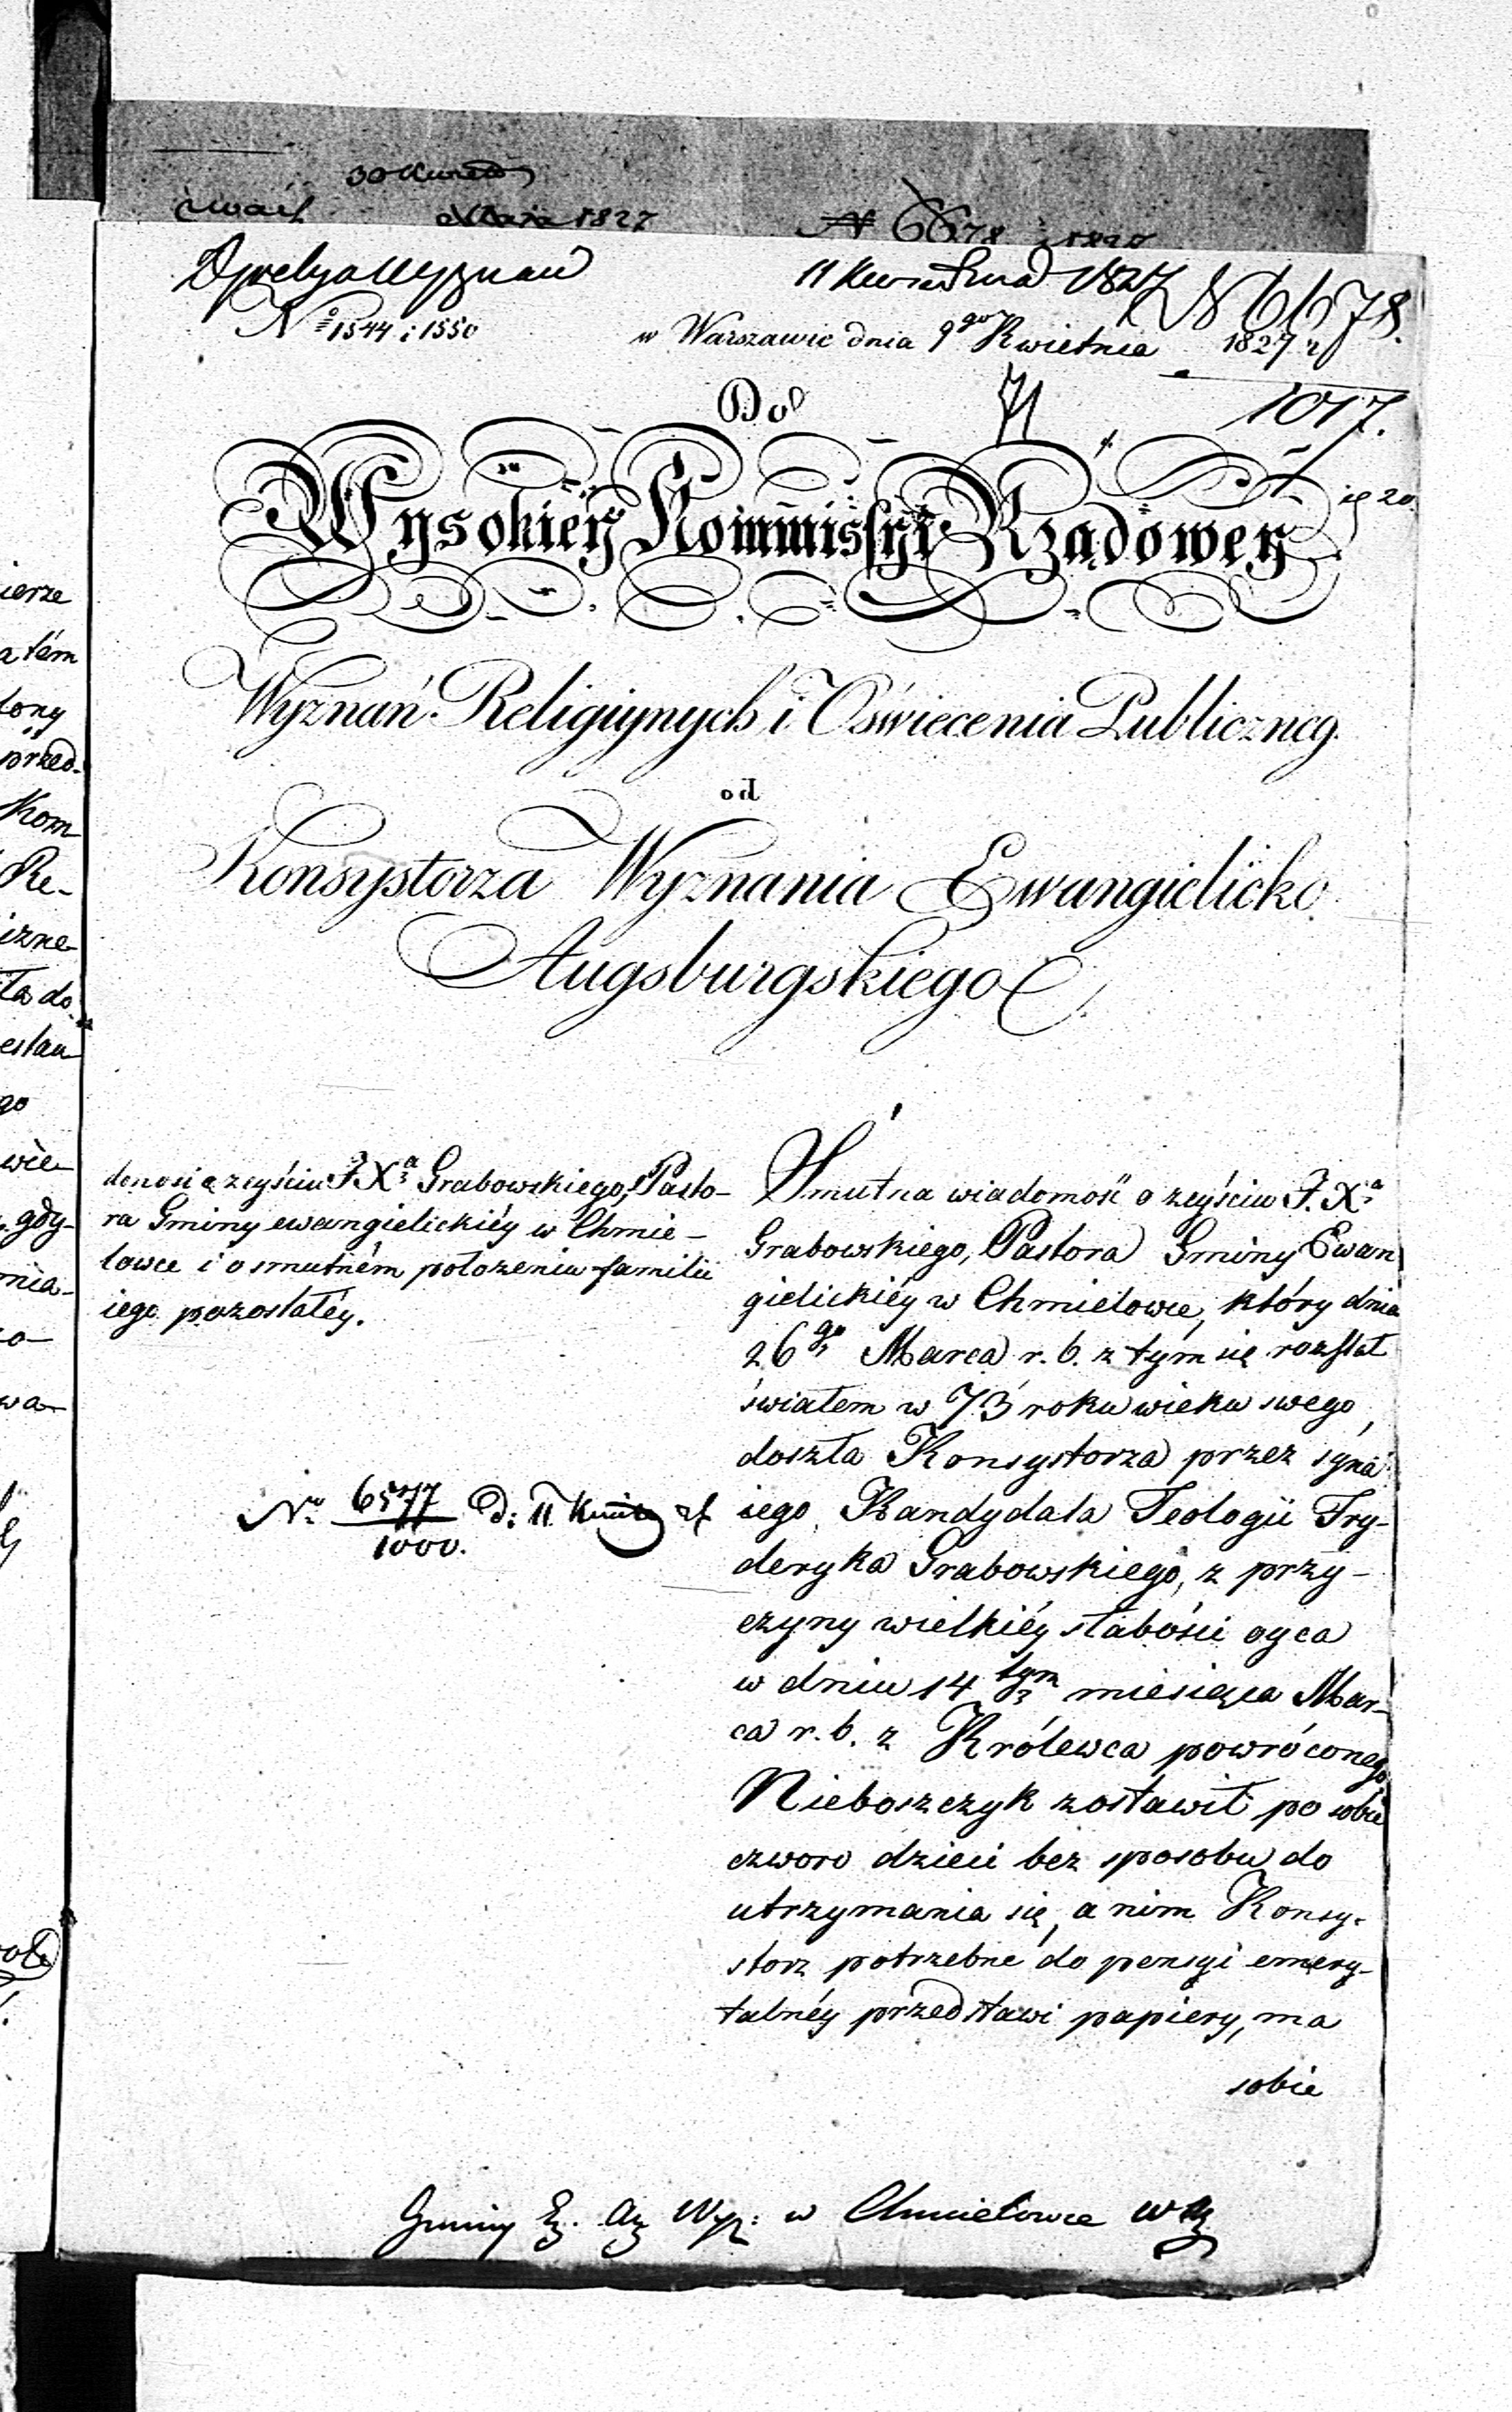 Maja 1827
№ 6678 1827
11 Kwietnia 1827
№ 6678.
№ 1544 i 1550
w Warszawie dnia 9go Kwietnia 1827 r
1017.
71
Do
Wysokiey Kommissyi Rządowey
Wyznań Religiynych i Oświecenia Publiczneg.
od
Konsystorza Wyznania Ewangielicko
Augsburgskiego
donosi o zeyściu J. Xa Grabowskiego, Pasto-
ra Gminy ewangielickiéy w Chmie-
lowce i o smutném położeniu familii
iego pozostałéy.
No 6577/1000. d. 11 Kwit
Smutna wiadomość o zeyściu J. Xa
Grabowskiego, Pastora Gminy Ewan
gielickiéy w Chmielowce, który dnia
26go Marca r. b. z tym się rozstał
światem w 73 roku wieku swego,
doszła Konsystorza przez syna
iego, Kandydata Teologii Fry-
deryka Grabowskiego, z przy-
czyny wielkiéy słabości oyca
w dniu 14tym miesiąca Mar-
ca r. b. z Królewca powróconego
Nieboszczyk zostawił po sobie
czworo dzieci bez sposobu do
utrzymania się, a nim Konsy-
storz potrzebne do pensyi emery-
talnéy przedstawi papiery, ma
sobie
Gminy Ew. Au Wyz: w Chmielowce
ierze
a tém
łony
przed-
Kom
Re-
izne-
ła do
estau
go
wie-
gdy-
mia-
o-
wa-